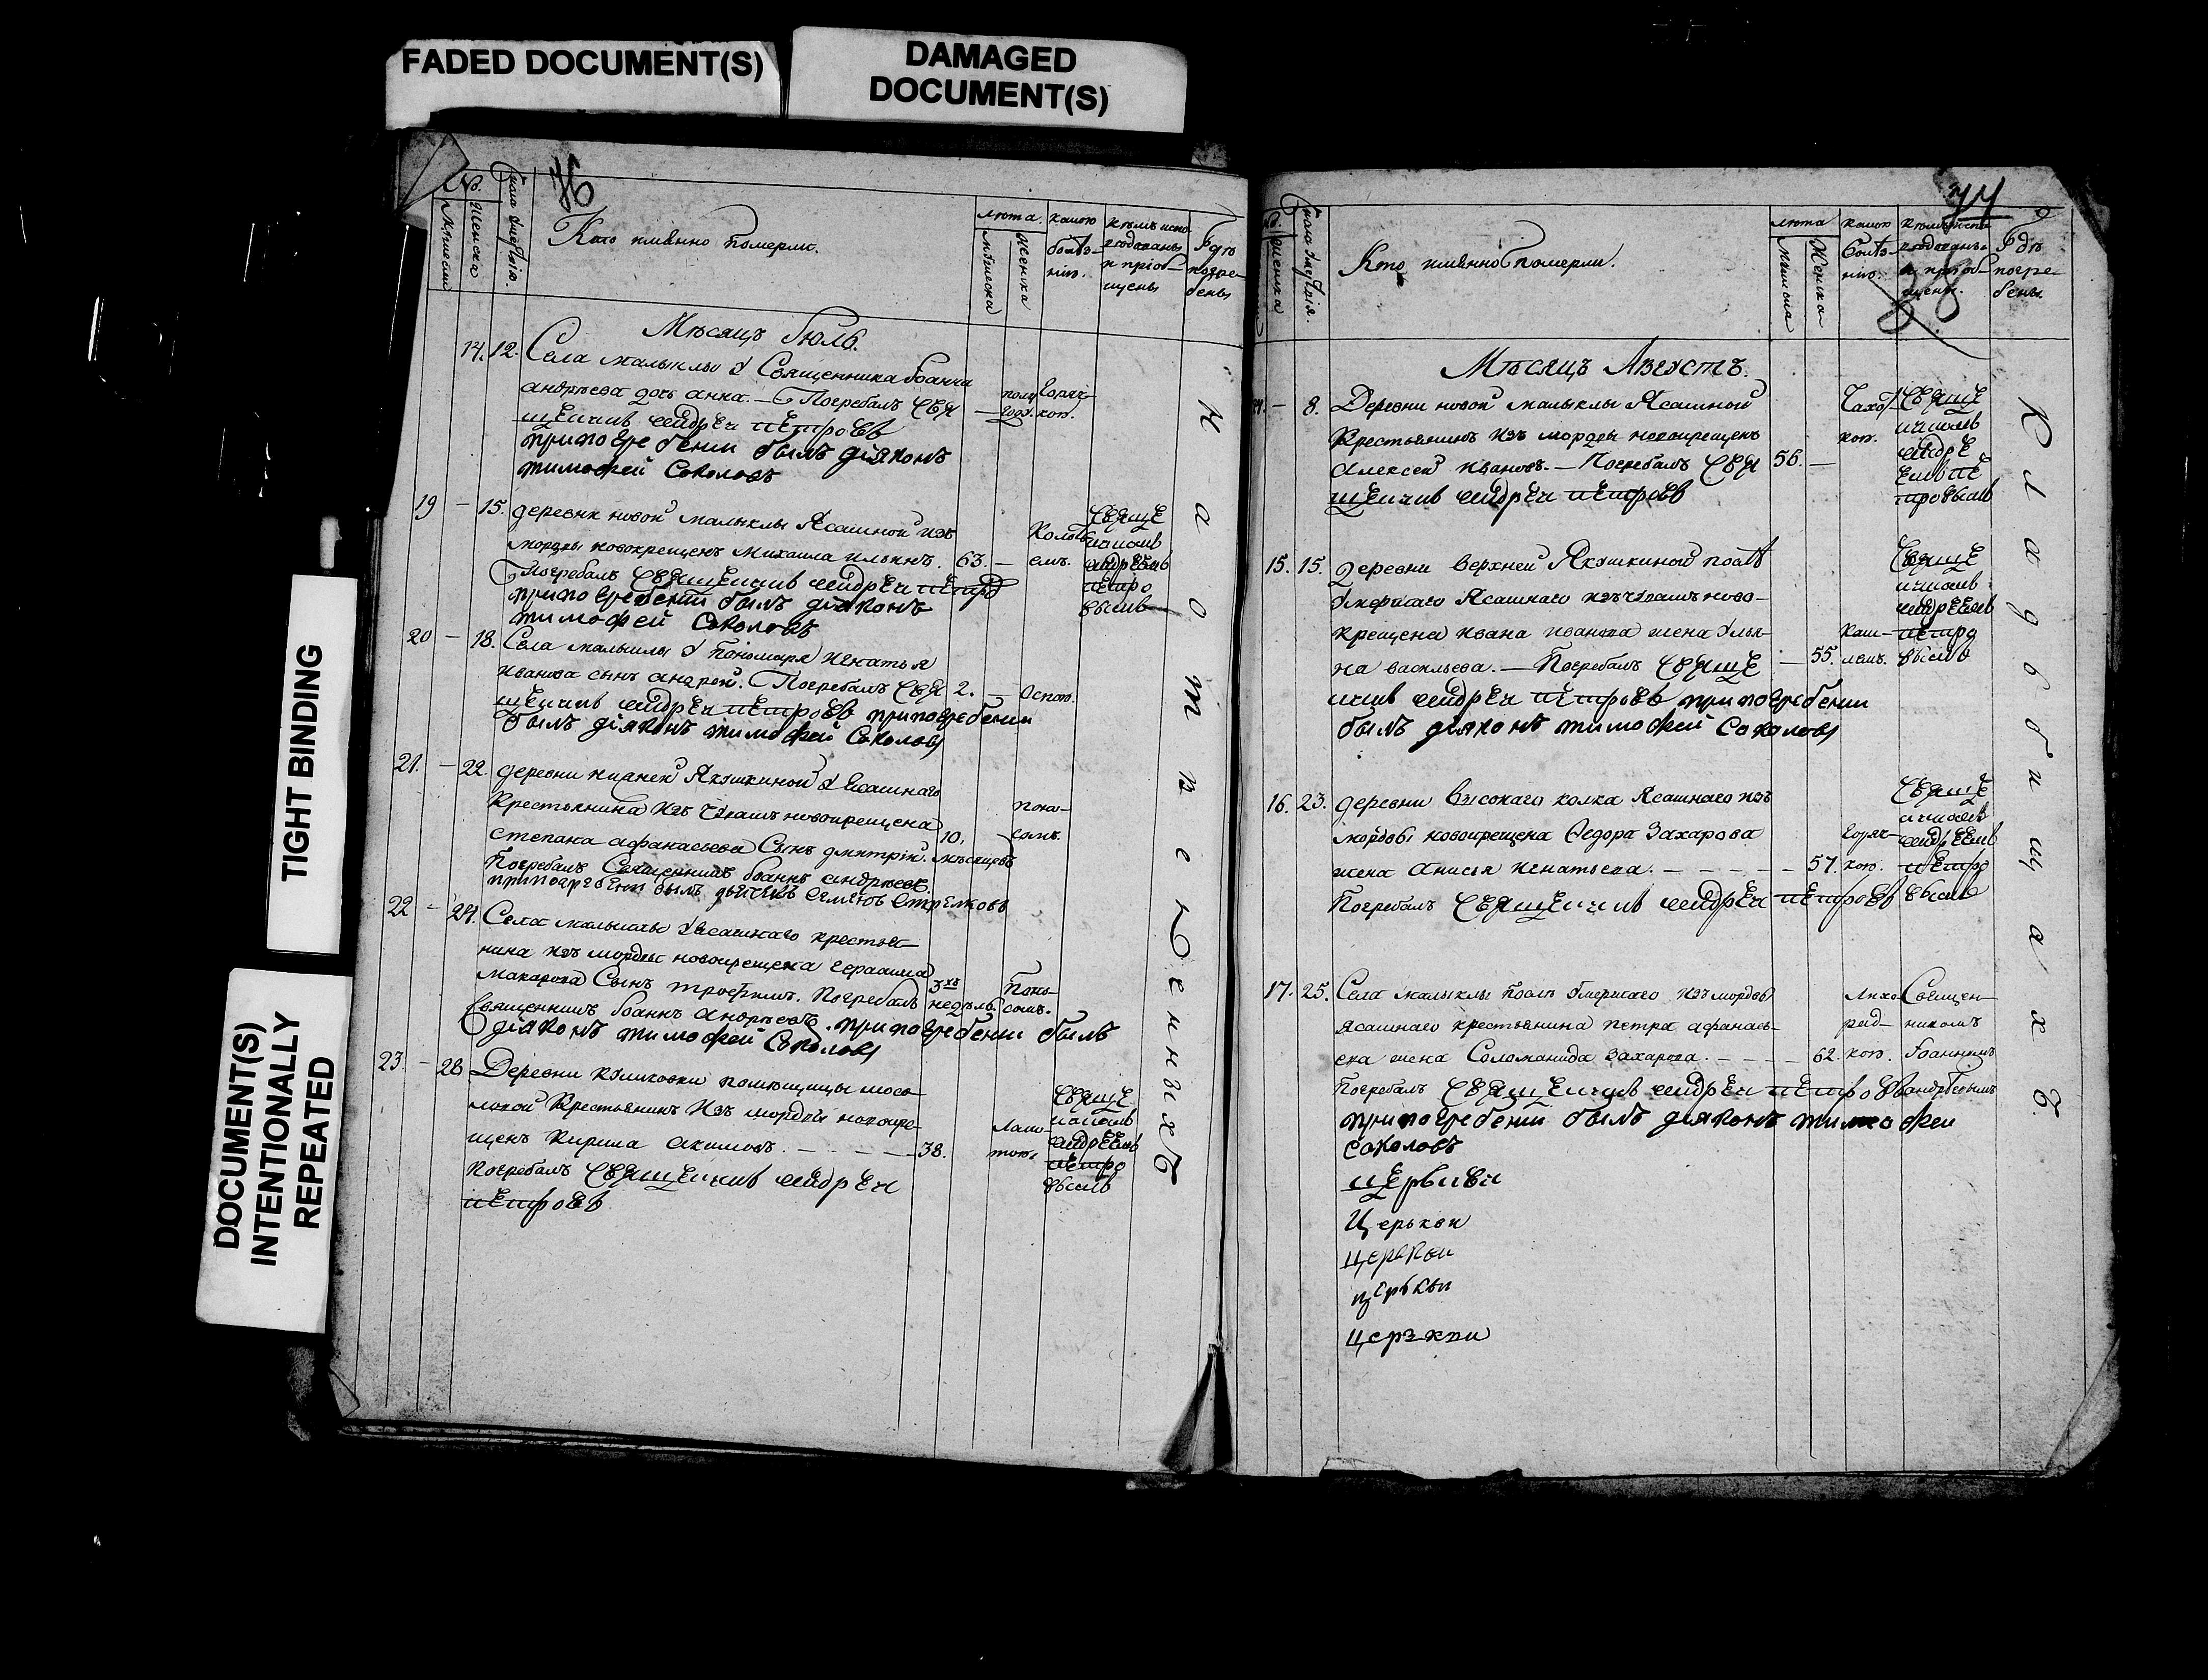 FADED DOCUMENT(S)
DAMAGED
DOCUMENT(S)
TIGHT BINDING
DOCUMENT(S)
INTENTIONALLY
REPEATED
76
Мужеска
Женска
Кто имянно померли.
лѣта.
мужеска
женска
какою
болѣз-
нію.
кѣмъ испо-
вѣдованы
и пріоб-
щены
Гдѣ
погре-
бены
Мѣсяцъ Іюль.
14. 12. Села малыклы у Священника Іоанна
андрѣева дочь анна. — Погребалъ Свя — полу года. горяч-кою.
щенникъ андрей петровъ
припогребении былъ діяконъ
тимофей Соколовъ
19 — 15. деревни новой малыклы Ясашной изъ
мордвы новокрещенъ Михаила илькинъ. 63. —
Погребалъ Священникъ андрей петро
припогребении былъ діяконъ
тимофей Соколовъ
Священникомъ андреемъ петровымъ
20 — 18. Села малыклы у пономаря игнатья
иванова сынъ андрей. Погребалъ Свя 2. — Оспою.
щенникъ андрей петровъ припогребении
былъ діяконъ тимофей Соколовъ
21. — 22. деревни нижней Якушкиной у Ясашнаго
Крестьянина изъ Чувашъ новокрещена
степана афанасьева Сынъ дмитрій. 10, мѣсяцовъ
поно-
сомъ.
Погребалъ Священникъ Іоаннъ андрѣевъ.
припогребении былъ дьячекъ семионъ стрелковъ
22 — 24. Села малыклы у Ясашнаго крестья-
нина изъ мордвы новокрещена герасима
макарова Сынъ трофимъ. Погребалъ 3хъ недѣль
Поно-
сомъ.
Священникъ Іоаннъ андрѣевъ. припогребении былъ
діяконъ тимофей Соколовъ
23. — 28 Деревни помѣщицы
Крестьянинъ Изъ мордвы новокре-
щенъ Кирила акимовъ. — — — 38.
Погребалъ Священникъ андрей
петровъ
Священникомъ андреемъ петровымъ
На отведенныхъ
77
38
женска
Кто имянно померли.
лѣта
мужеска
женска
какою
болѣз-
нію.
Гдѣ
погре-
бены.
Мѣсяцъ Августъ.
— 8. Деревни новой малыклы Ясашной
Крестьянинъ изъ мордвы новокрещенъ
Алексей ивановъ. — Погребалъ Свя 56. —
щенникъ андрей петровъ
Чахот-
кою.
Священникомъ андреемъ петровымъ
15. 15. деревни верхней Якушкиной послѣ
умершаго Ясашнаго изъ чувашъ ново-
крещена ивана иванова жена улья-
на васильева. — Погребалъ Свяще — 55.
нникъ андрей петровъ припогребении
былъ діяконъ тимофей Соколовъ
каш-
лемъ.
Священникомъ андреемъ петровымъ
16. 23. деревни высокаго колка Ясашнаго изъ
мордвы новокрещена Федора Захарова
жена анисья игнатьева. — — — — — 57.
Погребалъ Священникъ андрей петровъ
горяч-
кою.
Священникомъ андреемъ петровымъ
17. 25. Села малыклы послѣ умершаго изъ мордвы
ясашнаго крестьянина петра афанась-
ева жена Соломанида Захарова. — — — — 62.
Погребалъ Священникъ андрей петровъ
припогребении былъ діяконъ тимофеи
соколовъ
лихо-
рад-
кою.
Священ-
никомъ
Іоанномъ
андрѣевымъ
церькви
Церькви
церькви
церькви
церькви
Кладбищахъ